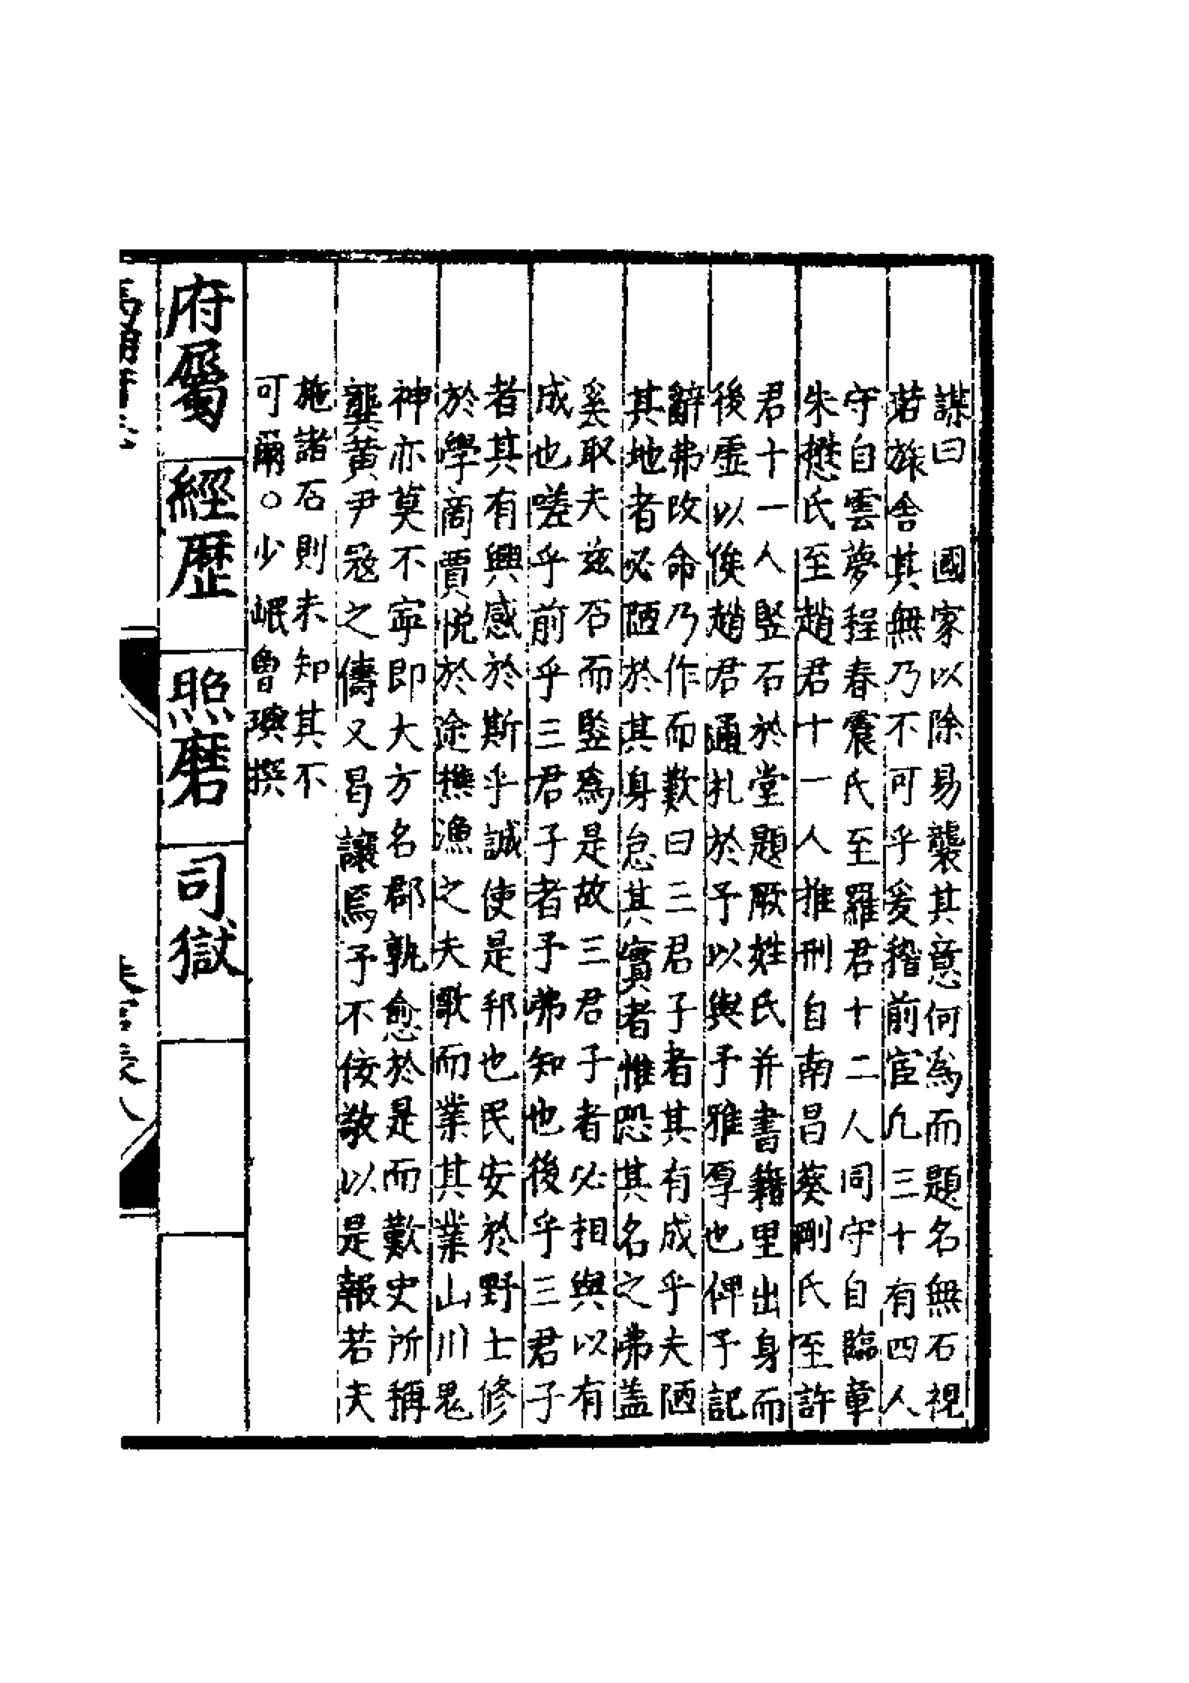 謀曰　國家以除易襲其意何為而題名無石視
若旅舍其無乃不可乎爰稽前宦凡三十有四人
守自雲夢程春震氏至羅君十二人同守自臨章
朱懋氏至趙君十一人推刑自南昌葵剛氏至許
君十一人竪石於堂題厥姓氏并書籍里出身而
後虛以俟趙君通札於予以與予雅厚也俾予記
辭弗改命乃作而歎曰三君子者其有成乎夫陋
其地者必陋於其身怠其實者惟恐其名之弗盖
奚取夫兹石而竪為是故三君子者必相與以有
成也嗟乎前乎三君子者予弗知也後乎三君子
者其有興感於斯乎誠使是邦也民安於野士修
於學商賈悦於途樵漁之夫歌而業其業山川鬼
神亦莫不寧即大方名郡孰愈於是而歎史所稱
龔黄尹寇之儔又曷讓焉予不佞敬以是報若夫
施諸石則未知其不
可爾○少岷曾璵撰
府屬 經歷 照磨 司獄